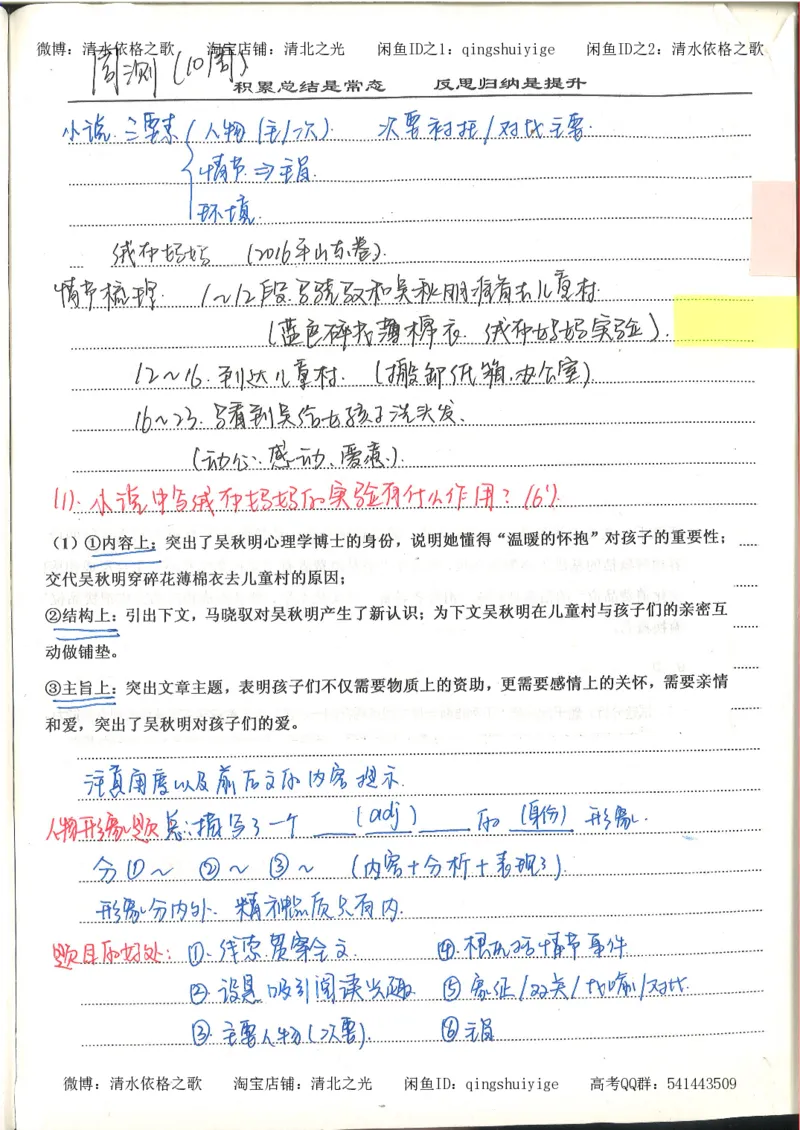 微博：清水依格之歌 淘宝店铺：清北之光 闲鱼ID之1：qingshuiyige 闲鱼ID之2：清水依格之歌
周测（10周）
积累总结是常态 反思归纳是提升
小说.三要素 人物（主/次）. 次要衬托/对比主要.
情节⇒主旨.
环境.
绒布妈妈 （2016年山东卷）.
情节梳理. 1～12段.马骁驭和吴秋明准备去儿童村.
（蓝色碎花薄棉衣.绒布妈妈实验）.
12～16.到达儿童村.（搬卸纸箱.办公室）.
16～23.马看到吴给女孩子洗头发.
（动心.感动、爱意.）.
(1).小说中写绒布妈妈的实验有什么作用？（6'）.
（1）①内容上：突出了吴秋明心理学博士的身份，说明她懂得“温暖的怀抱”对孩子的重要性；
交代吴秋明穿碎花薄棉衣去儿童村的原因；
②结构上：引出下文，马骁驭对吴秋明产生了新认识；为下文吴秋明在儿童村与孩子们的亲密互
动做铺垫。
③主旨上：突出文章主题，表明孩子们不仅需要物质上的资助，更需要感情上的关怀，需要亲情
和爱，突出了吴秋明对孩子们的爱。
注意角度以及前后文的内容提示.
人物形象题 总：描写了一个 （adj） 的（身份）形象.
分①～ ②～ ③～ （内容+分析+表现了）.
形象分内外.精神品质只有内.
题目的好处：①.线索.贯穿全文. ④.概括情节事件
②.设悬.吸引阅读兴趣. ⑤象征/双关/比喻/对比.
③.主要人物（次要）. ⑥主旨
微博：清水依格之歌 淘宝店铺：清北之光 闲鱼ID：qingshuiyige 高考QQ群：541443509